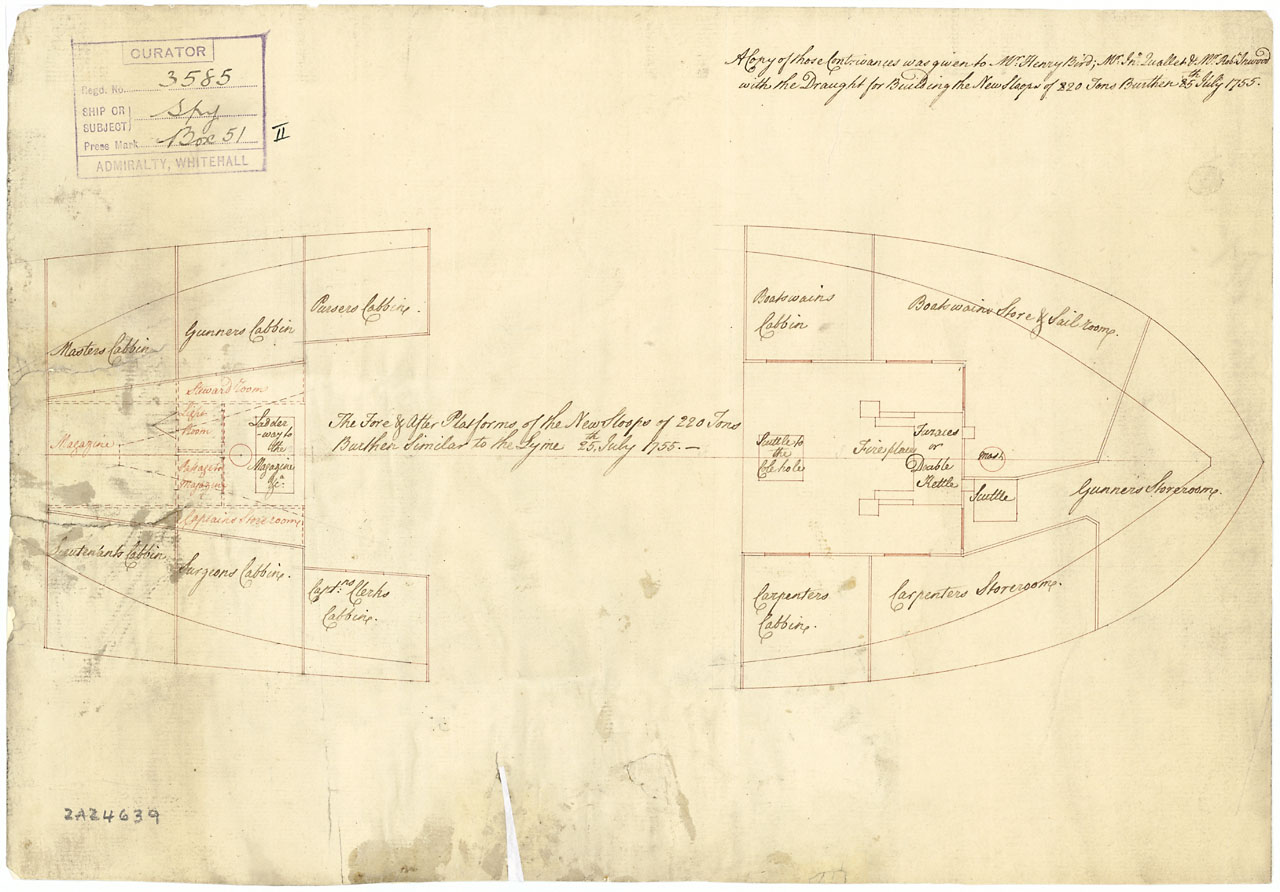 CURATOR
Regd. No. 3585
SHIP OR SUBJECT Spy
Press Mark Box 51
ADMIRALTY, WHITEHALL
II
A Copy of those Contrivances was given to Mr. Henry Bird; Mr. Jno. Quallet & Mr. Robt. Inwood
with the Draught for Building the New Sloops of 220 Tons Burthen 25th July 1755.
Masters Cabbin
Gunners Cabbin
Pursers Cabbin.
Steward room
Magazine
Room
Ladder
-way to
the
Magazine
&ca.
Passage to
Magazine
Captains Storeroom
Lieutenants Cabbin
Surgeons Cabbin.
Captns. Clerks
Cabbin.
The Fore & After Platforms of the New Sloops of 220 Tons
Burthen Similar to the Lyme 25th July 1755.—
Boatswains
Cabbin
Boatswains Store & Sail room.
Scuttle to
the
Cole hole
Fireplace
Furnaces
or
Double
Kettle
mast
Scuttle
Gunners Storeroom.
Carpenters
Cabbin.
Carpenters Storeroom.
2A24639